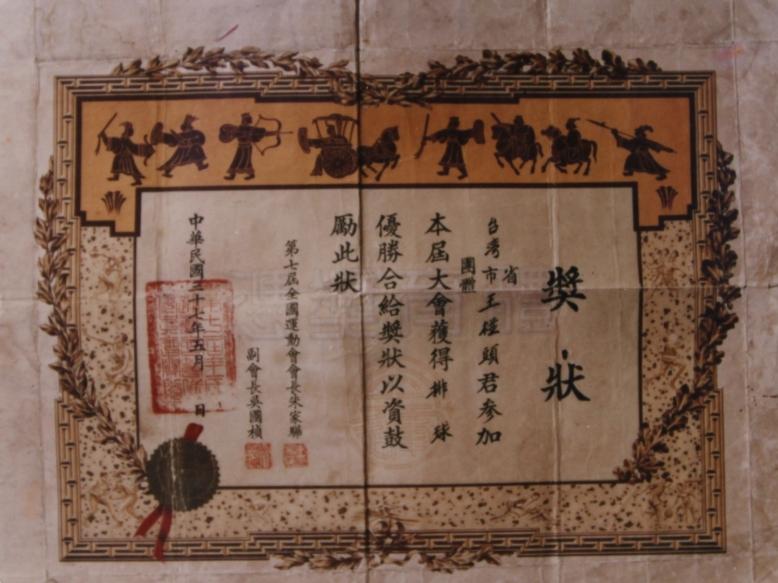 獎狀
台湾省市
團體
王頭君參加
本屆大會獲得排球
優勝合給獎狀以資鼓
勵此狀
第七屆全國運動會會長朱家驊
副會長吳國楨
中華民國三十七年五月 日